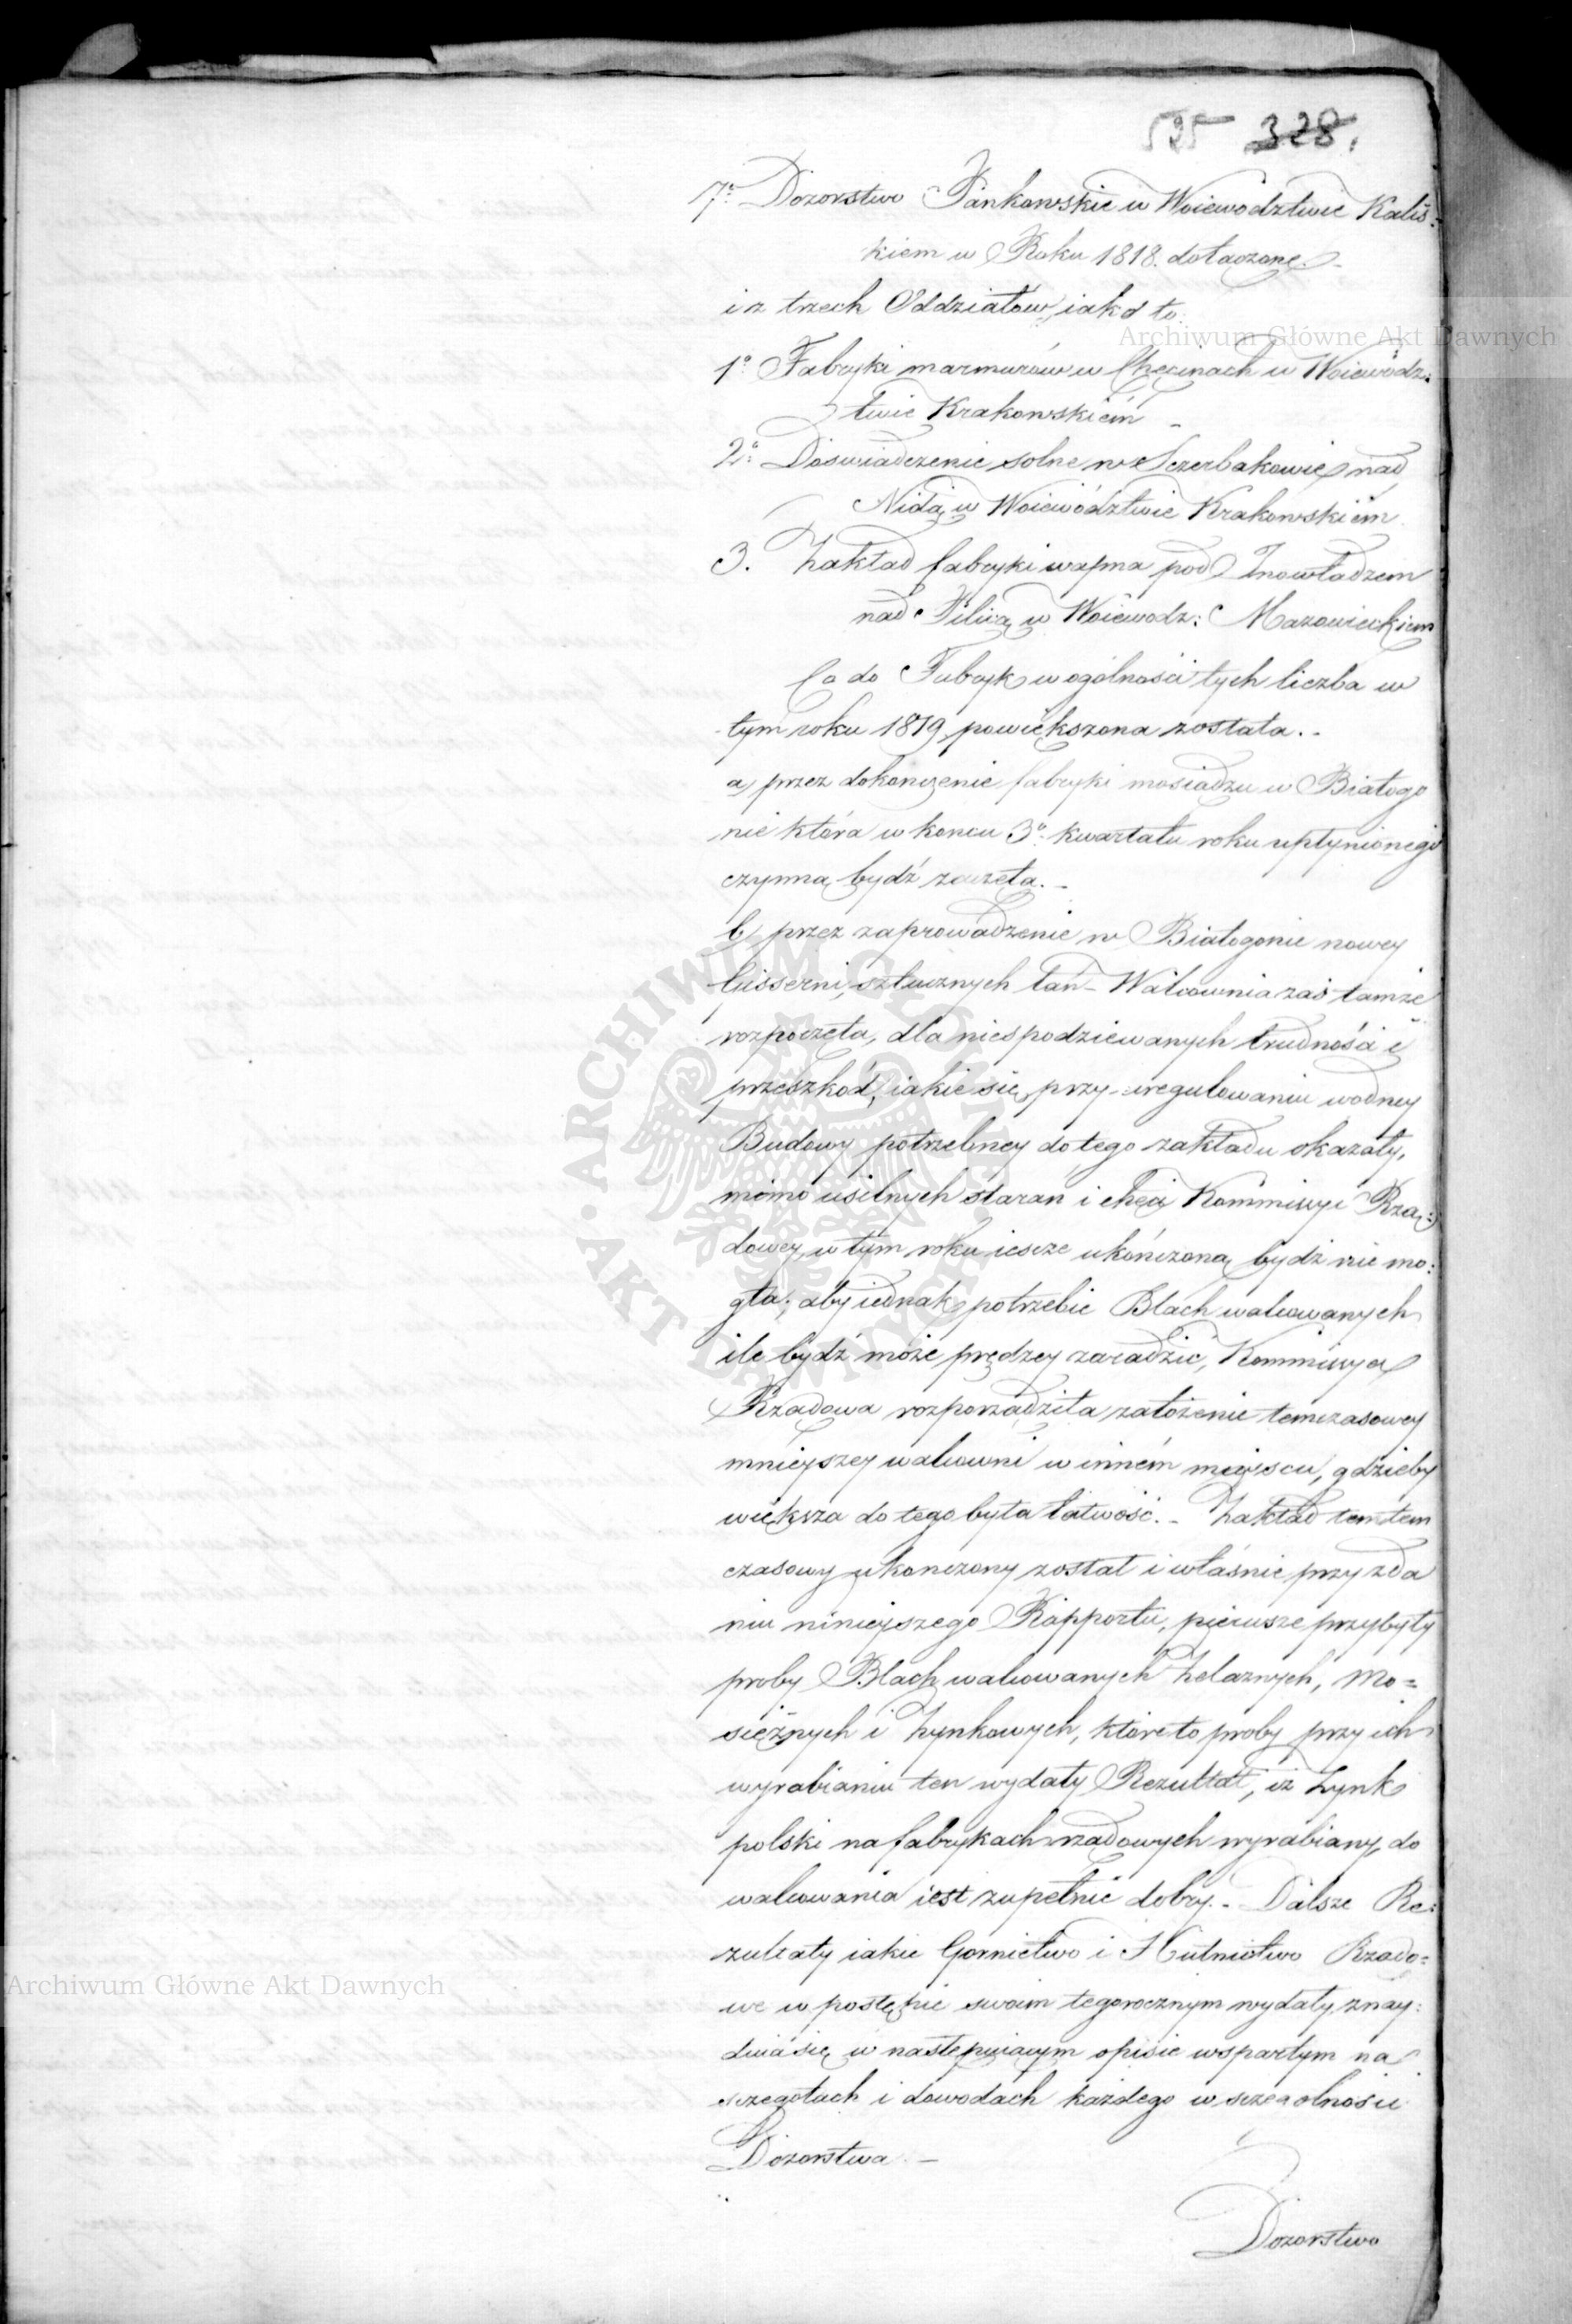 525 328.
7º Dozorstwo Pankowskie w Woiewodztwie Kalis:
kiem w Roku 1818. dołączone. -
i z trzech Oddziałow, iako to:
1º Fabryki marmurów w Chęcinach w Woiewódz:
twie Krakowskiém -
2º Doswiadczenie solne w Sczerbakowie nad
Nidą w Woiewództwie Krakowskiém
3. Zakład fabryki wapna pod Inowłodzem
nad Pilicą w Woiewodz: Mazowieckiem
Co do Fabryk w ogólności tych liczba w
tym roku 1819 powiększona została. -
a, przez dokonczenie fabryki mosiądzu w Białogo
nie która w koncu 3º kwartału roku upłynionego
czynną bydź zaczęła. -
b, przez zaprowadzenie w Białogonie nowey
Gisserni, sztucznych lań - Walcownia zaś tamże
rozpoczęta, dla niespodziewanych trudności i
przeszkod, iakie się przy uregulowaniu wodney
Budowy potrzebney do tego zakładu okazały,
mimo usilnych starań i chęci Kommissyi Rzą:
dowey w tym roku iescze ukończoną bydź nie mo:
gła; aby iednak potrzebie Blach walcowanych
ile bydź może prędzey zaradzić, Kommissya
Rządowa rozporządziła założenie temczasowey
mnieyszey walcowni w inném mieyscu, gdzieby
większa do tego była łatwość. - Zakład ten tem
czasowy ukonczony został i właśnie przy zda
niu ninieyszego Rapportu, pierwsze przybyły
proby Blach walcowanych Żelaznych, Mo=
siężnych i Zynkowych, które to proby przy ich
wyrabianiu ten wydały Rezultat, iż Zynk
polski na fabrykach rządowych wyrabiany, do
walcowania iest zupełnie dobry. - Dalsze Re:
zultaty iakie Gornictwo i Hutnictwo Rządo=
we w postępie swoim tegorocznym wydały, znay:
duią się w następuiącym opisie wspartym na
sczegołach i dowodach każdego w sczegolności
Dozorstwa. -
Dozorstwo
Archiwum Główne Akt Dawnych
Archiwum Główne Akt Dawnych
ARCHIWUM GŁÓWNE AKT DAWNYCH